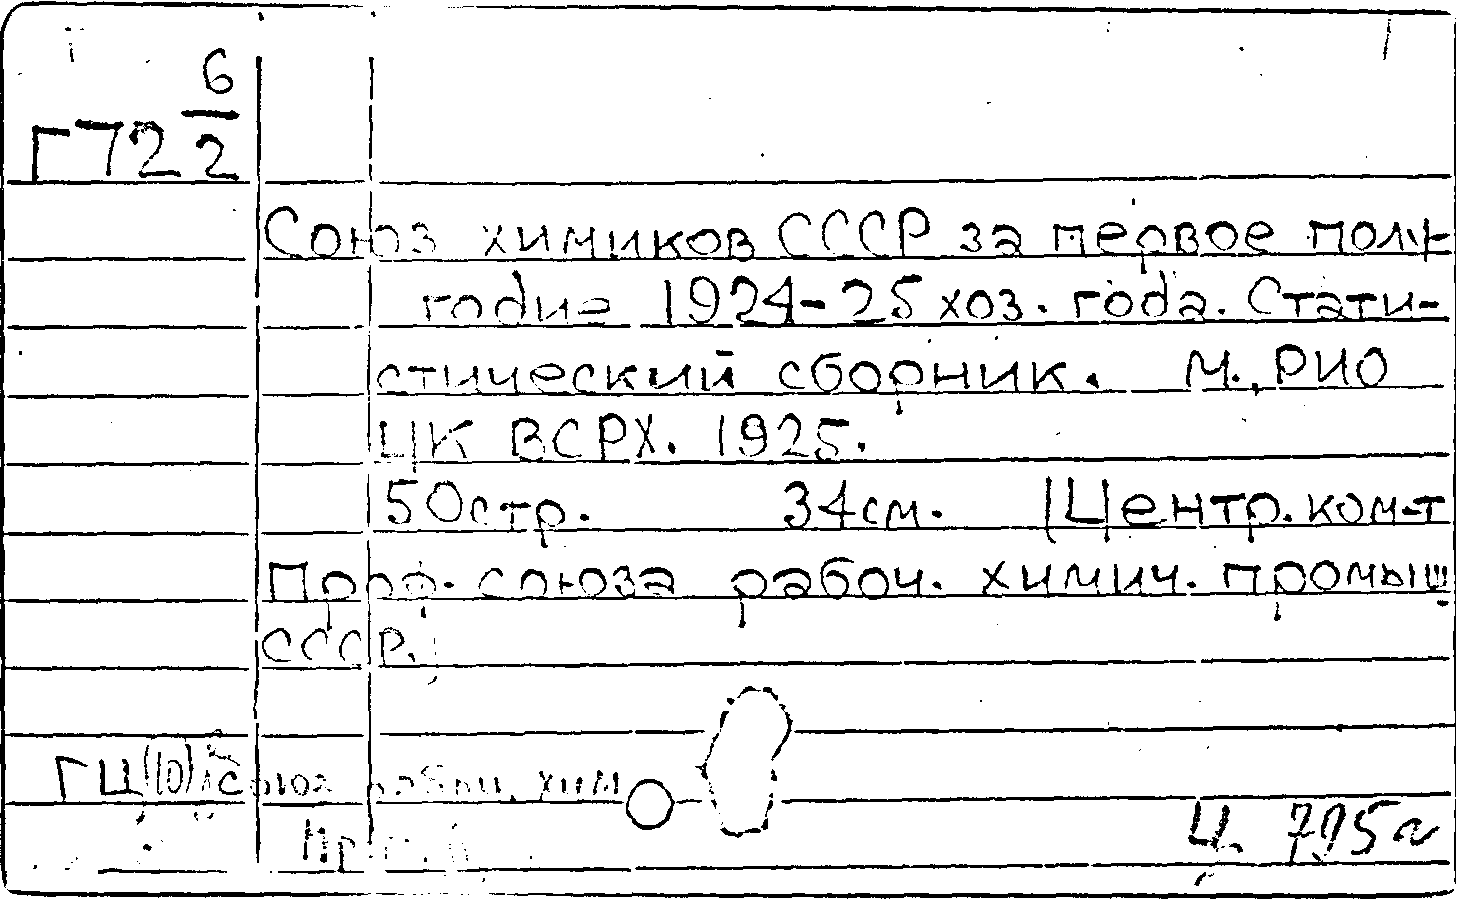 Г72 6/2
Союз химиков СССР за первое полу-
годие 1924-25 хоз. года. Стати-
стический сборник. М., РИО
ЦК ВСРХ. 1925.
50стр. 34см. (Центр. ком-т
Проф. союза рабоч. химич. промыш
СССР.)
ГЦ(10) союз рабоч. хим
Ц. 795а